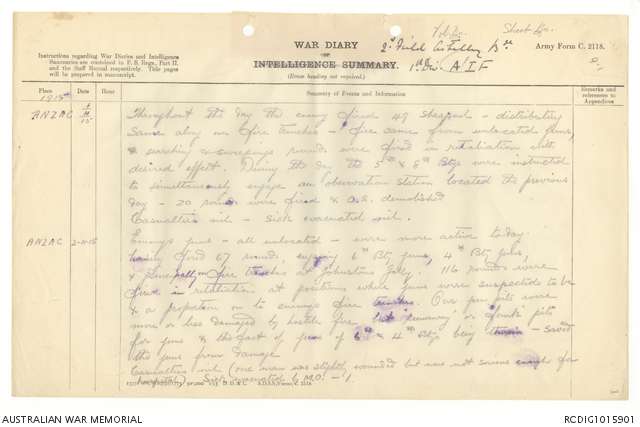 Vol
Sheet
Instructions regarding War Diaries and Intelligence
Summaries are contained in F.S. Regs., Part II.
and the Staff Manual respectively. Title pages
will be prepared in manuscript.
WAR DIARY
or
INTELLIGENCE SUMMARY.
(Erase heading not required.)
2nd Field Artillery Bde
1st Div. A I F
Army Form C. 2118.
Place
Date
Hour
Summary of Events and Information
Remarks and
references to
Appendices
1915
ANZAC
Throughout the day the enemy fired 49 shrapnel - distributing
same along our fire trenches - fire came from unlocated guns,
& searching & sweeping rounds were fired in retaliation with
desired effect. During the day the 5th & 8th Btys were instructed
to simultaneously engage an observation station located the previous
day - 20 rounds were fired & O.S. demolished
Casualties nil - Sick evacuated nil.
ANZAC
2-11-15
Enemy's guns - all unlocated - were more active to-day
having fired 67 rounds, 6th Bty guns, 4th Bty guns,
& principally on fire trenches at Johnstons Jolly. 116 rounds were
fired in retaliation at positions where guns were suspected to be
& a proportion on to enemys fire trenches. Our gun pits were
more or less damaged by hostile fire but or pits
for guns & the fact of guns of 6th & 4th Btys being therein - saved
the guns from damage.
Casualties nil (one man was slightly wounded but was not serious enough for
hospital). Sick evacuated by M.O. - 1
AUSTRALIAN WAR MEMORIAL
RCDIG1015901